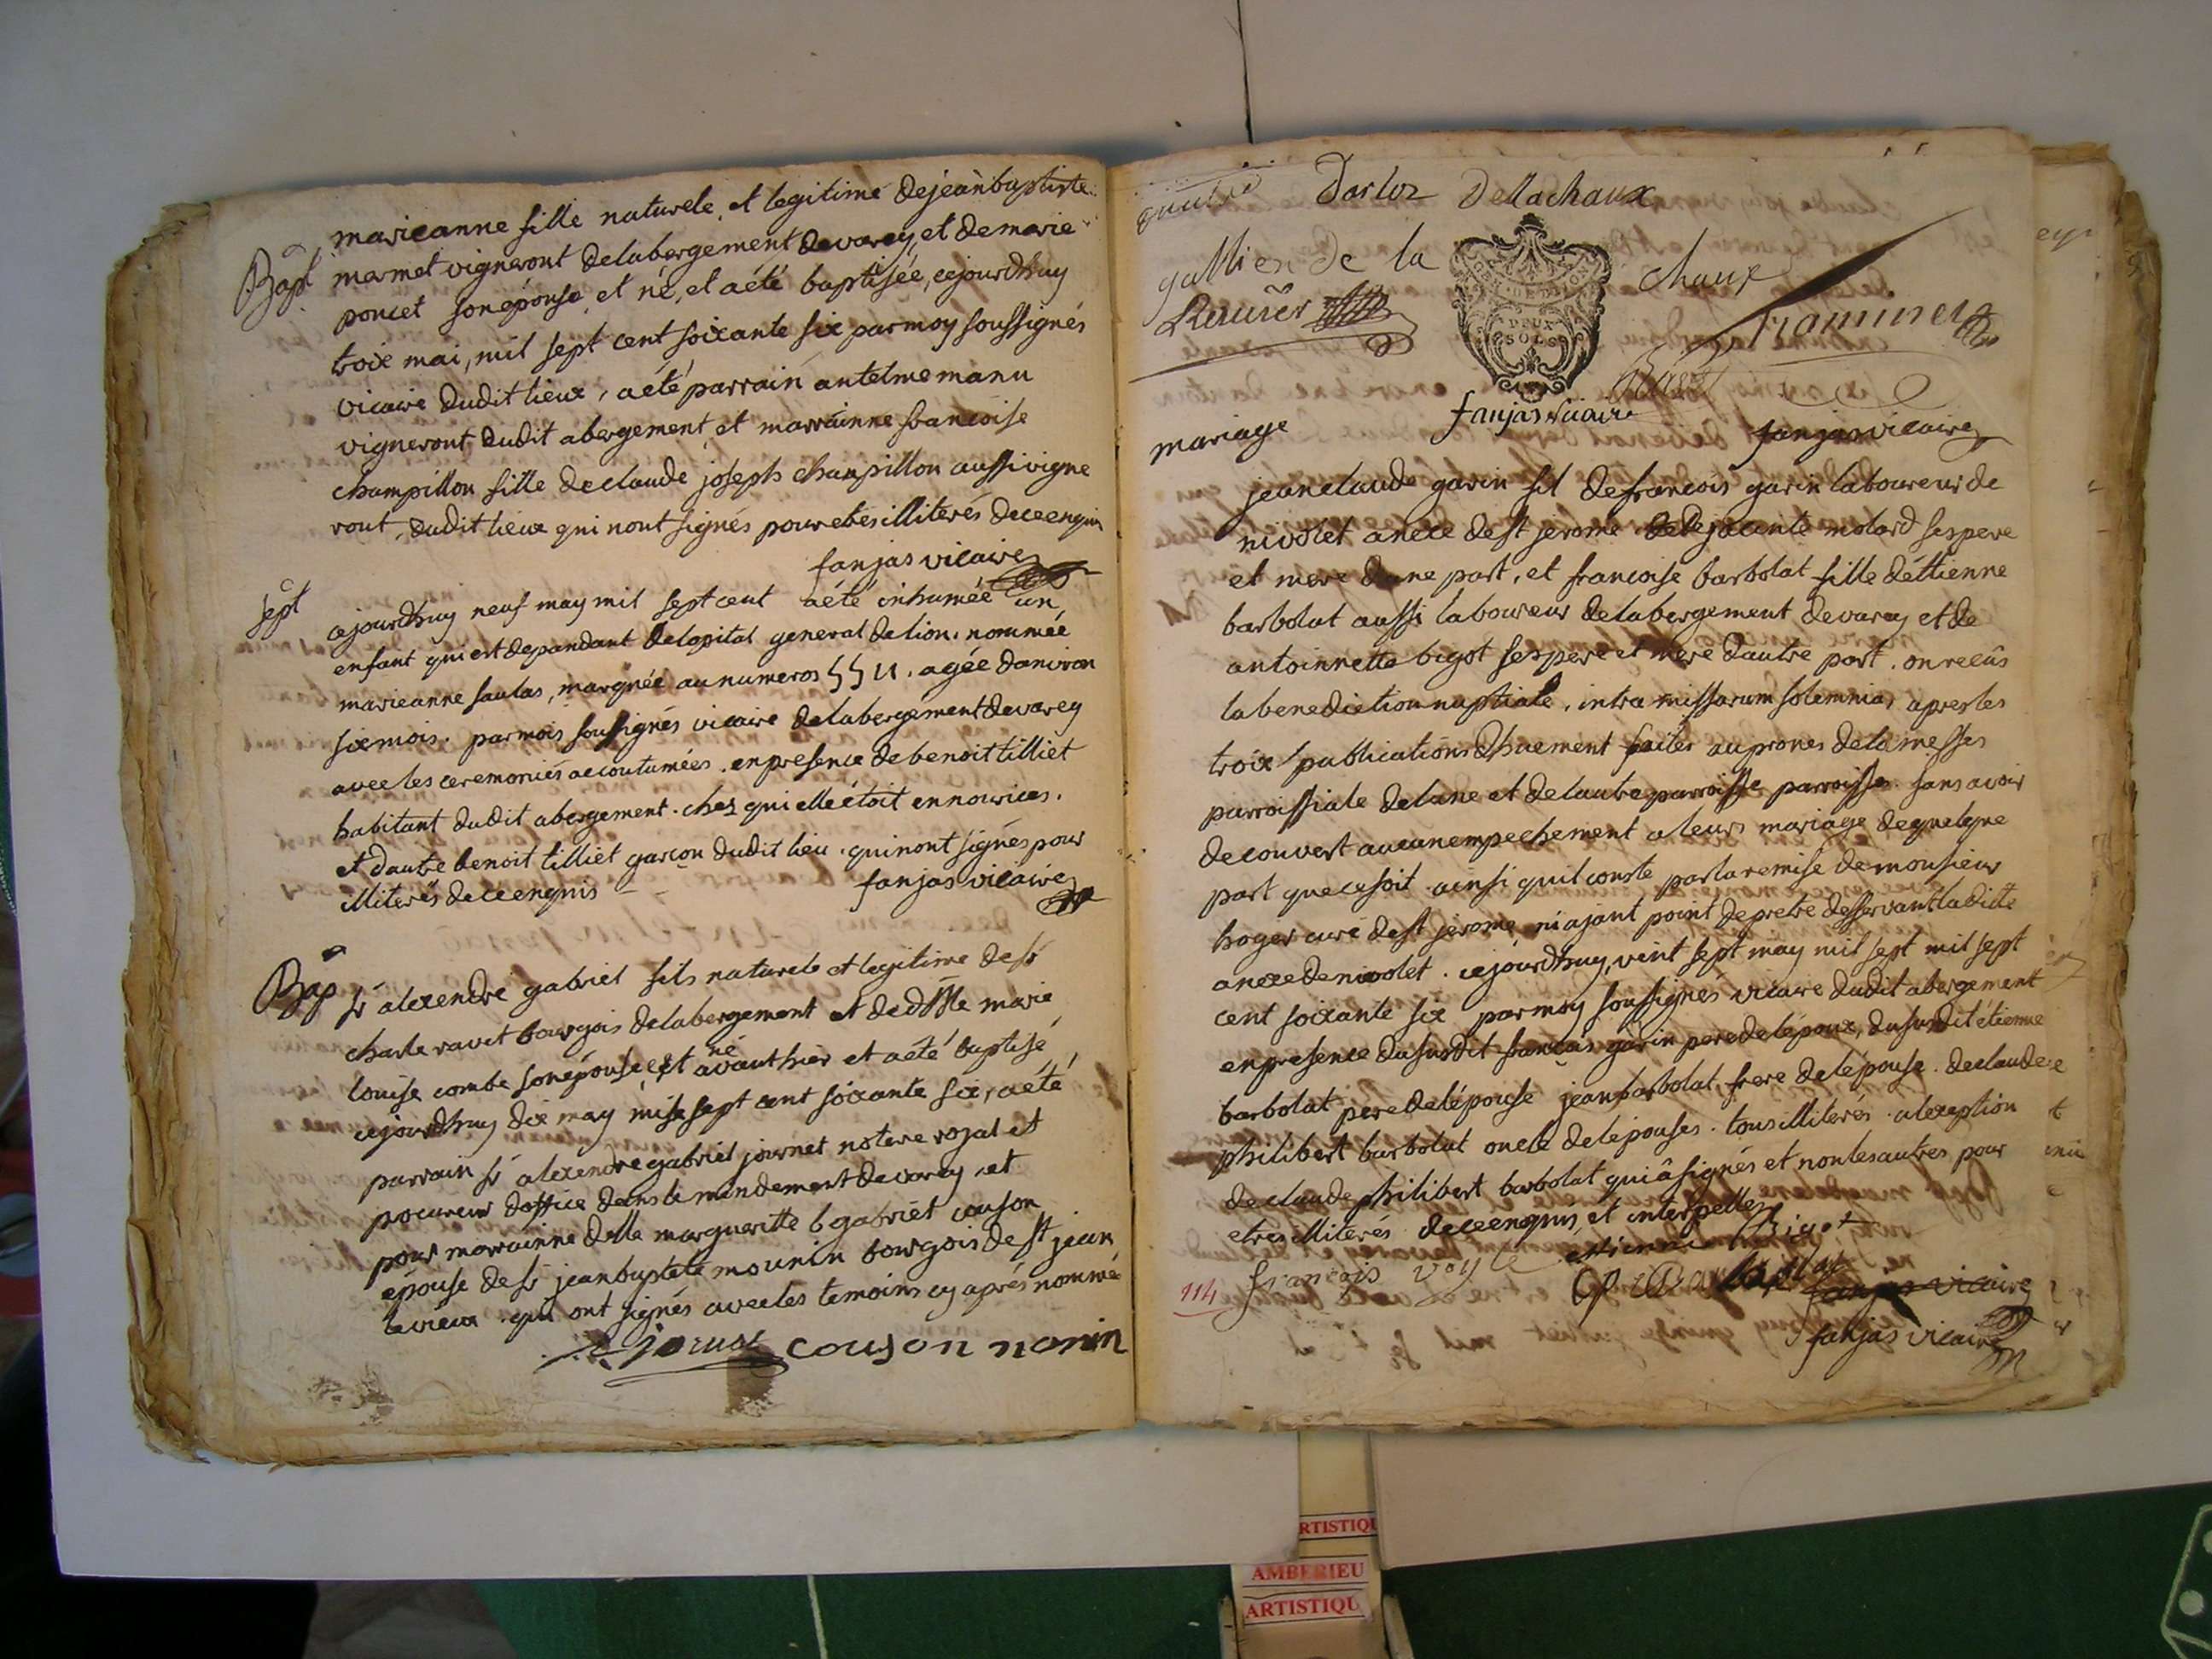 Bapt
marieanne fille naturele, et legitime dejeanbaptiste
mermet vigneront delabergement devarey, et demarie
poncet sonépouse, et né, et aété baptisée, cejourdhuy
troix mai, mil sept cent soixante six parmoy soussignés
vicaire dudit lieux, aété parrain antelme manu
vigneront dudit abergement, et marrainne francoise
champillon fille declaude joseph champillon aussi vigne
ront, dudit lieux qui nont signés pour etes illiterés deceenquis
fanjas vicaire
sept
cejourdhuy neuf may mil sept cent aété inhumée un
enfant qui est depandant delopital general delion. nommée
marieanne saulas, marquée au numeros agée daniron
sixmois. parmois soussignés vicaire delabergement devarey
avec les ceremoniés accoutumées. enpresence de benoit tilliet
habitant dudit abergement. chez qui elle étoit ennourices.
et dautre benoit tilliet garcon dudit lieu. quinont signés pour
illiterés deceenquis
fanjas vicaire
Bap
sr alexendre gabriel fils naturele et legitime de sr
charle ravet bourgois delabergement et de dlle marie
louise combe sonépouse est né avanthier et aété baptisé
cejourdhuy dix may mise sept cent soixante six, aété
parrain sr alexendre gabriel journet notere rojal et
pocureur doffice dans le mendement devarey, et
pour marrainne delle margueritte gabriel couson
épouse de sr jeanbaptiste mounin bourgois de st jean
levieux qui ont signés avecles temoins cy aprés nommé
couson nonin
Dorloz Dellachaux
gallien de la chaux
GEN. DE DIJON
DEUX
SOLS
fanjas vicaire
fanjas vicaire
mariage
jeanclaude garin fil defrancois garin laboureur de
nivolet anexe dest jerome dejacente molard ses pere
et mere dune part, et francoise barbolat fille déttienne
barbolat aussi laboureur delabergement devarey et de
antoinnette bigot ses pere et mere dautre part. on recûs
labenediction nuptiale, intra missarum solemnia, apres les
troix publications dhuement faites au prones delamesses
parroissiale delune et delautre parroisse parroisse. sans avoir
decouvert aucunempechement a leurs mariage dequelque
part quecesoit. ainsi quil conste parlaremise demonsieur
hoger curé dest jerome, niajant point de pretre desservant ladicte
anexe denivolet. cejourdhuy, vint sept may mil sept mil sept
cent soixante six parmoy soussignés vicaire dudit abergement
enpresence dususdit francois garin pere de lépoux, dususdit étienne
barbolat pere delépouse jean barbolat, frere delépouse. declaude
philibert barbolat oncle delepouses. tous illiterés. alexeption
declaude philibert barbolat qui â signés et nonlesautres pour
etres illiterés deceenquis, et interpellez
ettienne Bigot
francois
fanjas vicaire
fanjas vicaire
114
RTISTIQU
AMBERIEU
ARTISTIQU